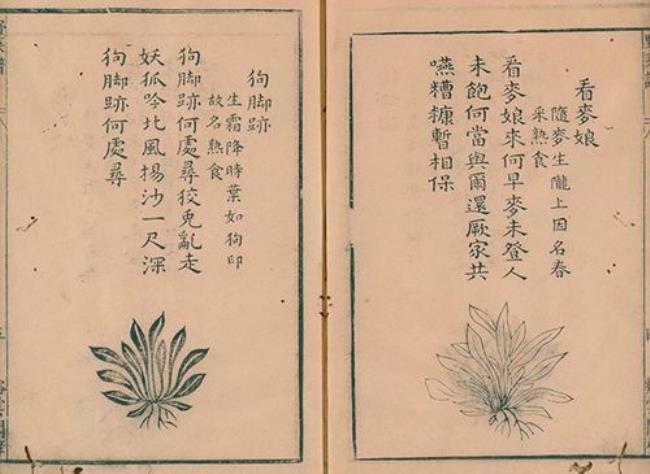 看麥娘
隨麥生隴上因名春
采熟食
看麥娘來何早麥未登人
未飽何當與爾還厥家共
嚥糟糠暫相保
狗脚跡
生霜降時葉如狗印
故名熟食
狗脚跡何處尋狡兎亂走
妖狐吟北風揚沙一尺深
狗脚跡何處尋